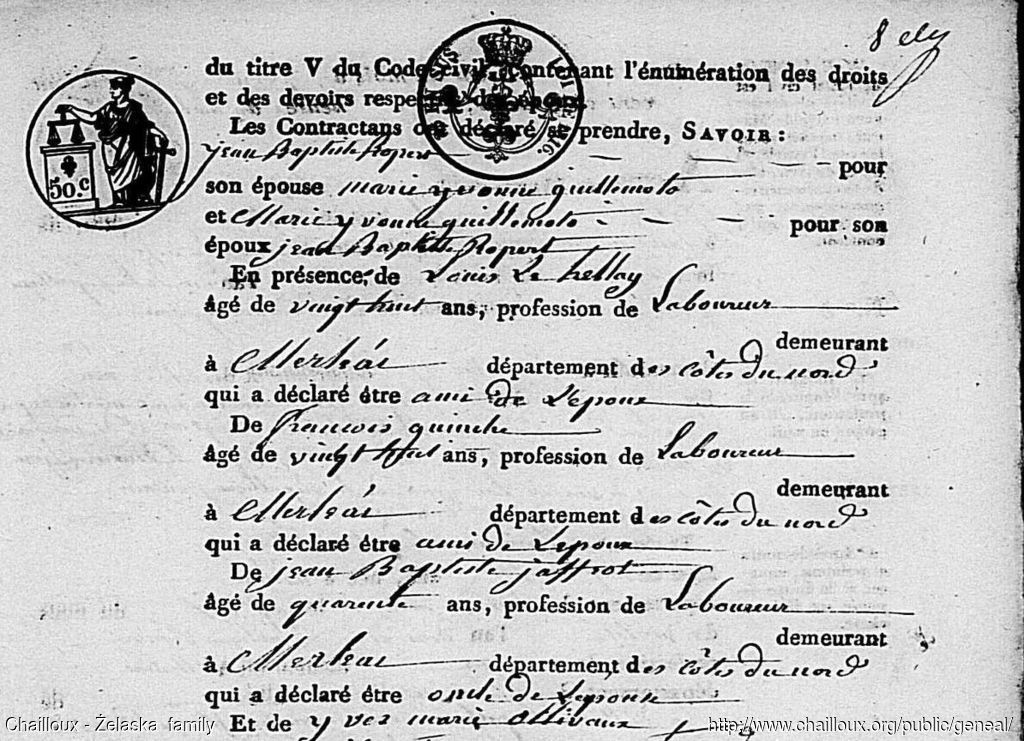 du titre V du Code civil, contenant l'énumération des droits
et des devoirs respectifs des époux.
Les Contractans ont déclaré se prendre, SAVOIR :
jean Baptiste Ropert pour
son épouse marie yvonne guillemoto
et Marie yvonne guillemoto pour son
époux jean Baptiste Ropert
En présence de Louis Le hellay
âgé de vingt huit ans, profession de Laboureur
demeurant
à Merleác département des côtes du nord
qui a déclaré être ami de L'epoux
De francois quinche
âgé de vingt huit ans, profession de Laboureur
demeurant
à Merleác département des côtes du nord
qui a déclaré être ami de Lepoux
De jean Baptiste jaffrot
âgé de quarente ans, profession de Laboureur
demeurant
à Merleac département des côtes du nord
qui a déclaré être oncle de Lepoux
Et de yves marie ollivaux
50.c
Chailloux - Żelaska family
http://www.chailloux.org/public/geneal/